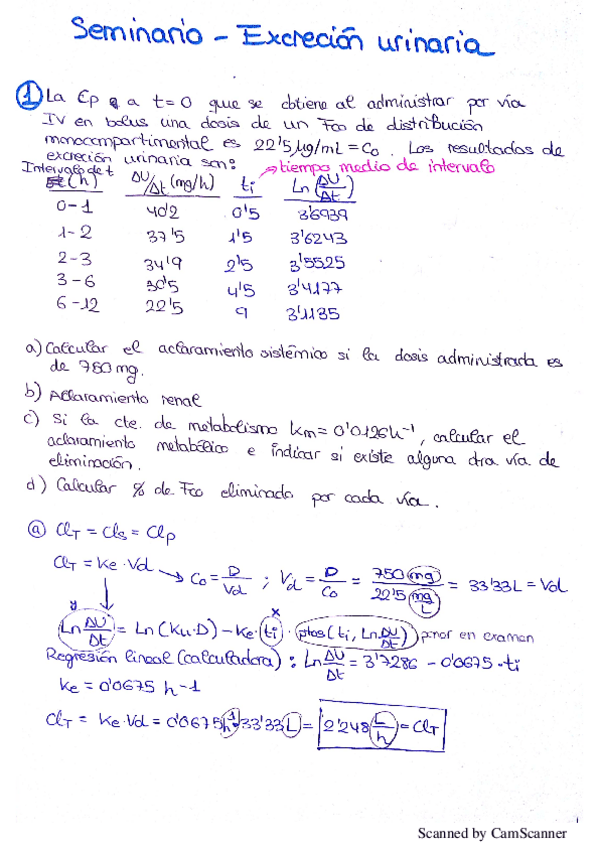 Seminario - Excreción urinaria
① La Cp a t=0 que se obtiene al administrar por vía
IV en bolus una dosis de un Fco de distribución
monocompartimental es 22'5 µg/mL = C0. Los resultados de
excreción urinaria son:
→ tiempo medio de intervalo
Intervalo de t (h) ΔU/Δt (mg/h) ti Ln(ΔU/Δt)
0-1 40'2 0'5 3'6939
1-2 37'5 1'5 3'6243
2-3 34'9 2'5 3'5525
3-6 30'5 4'5 3'4177
6-12 22'5 9 3'1135
a) Calcular el aclaramiento sistémico si la dosis administrada es
de 750 mg.
b) Aclaramiento renal
c) Si la cte. de metabolismo km = 0'0126 h⁻¹, calcular el
aclaramiento metabólico e indicar si existe alguna otra vía de
eliminación.
d) Calcular % de Fco eliminado por cada vía.
ⓐ ClT = Cls = Clp
ClT = Ke · Vd → C0 = D/Vd ; Vd = D/C0 = 750 mg / 22'5 mg/L = 33'33 L = Vd
y x
Ln ΔU/Δt = Ln (Ku·D) - Ke · ti · ptos (ti, Ln ΔU/Δt) poner en examen
Regresión lineal (calculadora) : Ln ΔU/Δt = 3'7286 - 0'0675 · ti
Ke = 0'0675 h-1
ClT = Ke · Vd = 0'0675 h⁻¹ · 33'33 L = 2'248 L/h = ClT
Scanned by CamScanner